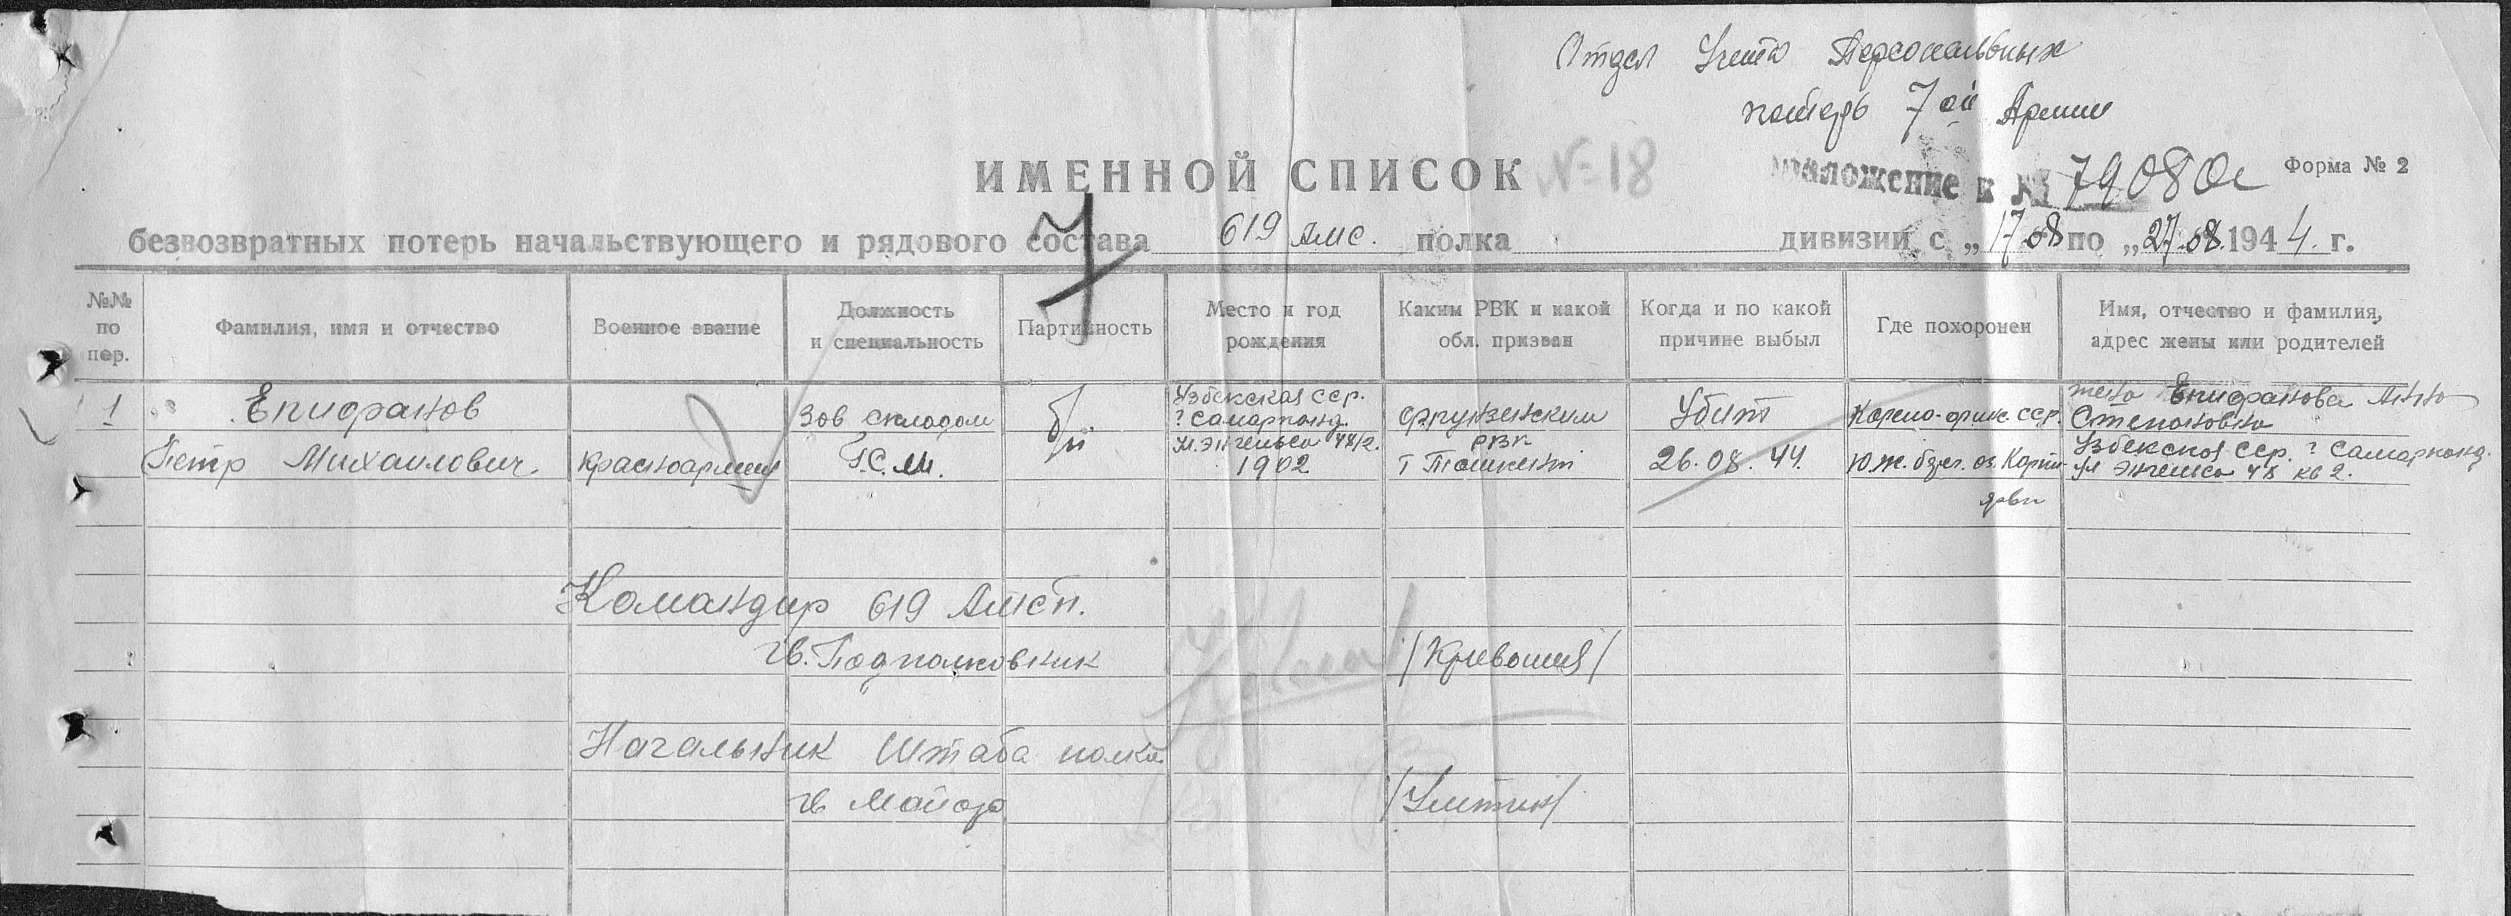 Отдел Учета Персональных
потерь 7ой Армии
ИМЕННОЙ СПИСОК №18
Форма № 2
безвозвратных потерь начальствующего и рядового состава 619 Амс. полка дивизии с „17.08 по „27.08.1944 г.
7
№№ по пер.
Фамилия, имя и отчество
Военное звание
Должность и специальность
Партийность
Место и год рождения
Каким РВК и какой обл. призван
Когда и по какой причине выбыл
Где похоронен
Имя, отчество и фамилия, адрес жены или родителей
1
Епифанов
Петр Михайлович.
красноармеец
Зав складом
Г.С.М.
б/п
Узбекская сср.
г Самарканд.
ул. Энгельса
1902
Фрунзенским
РВК
г Ташкент
Убит
26.08.44.
Карело-финс. сср.
Юж. бер. оз. Карти-
ярви
жена Епифанова Анна
Степановна
Узбекская сср. г Самарканд.
ул Энгельса кв 2.
Командир 619 Амсп.
гв. Подполковник /Кривошея/
Начальник Штаба полка
гв Майор